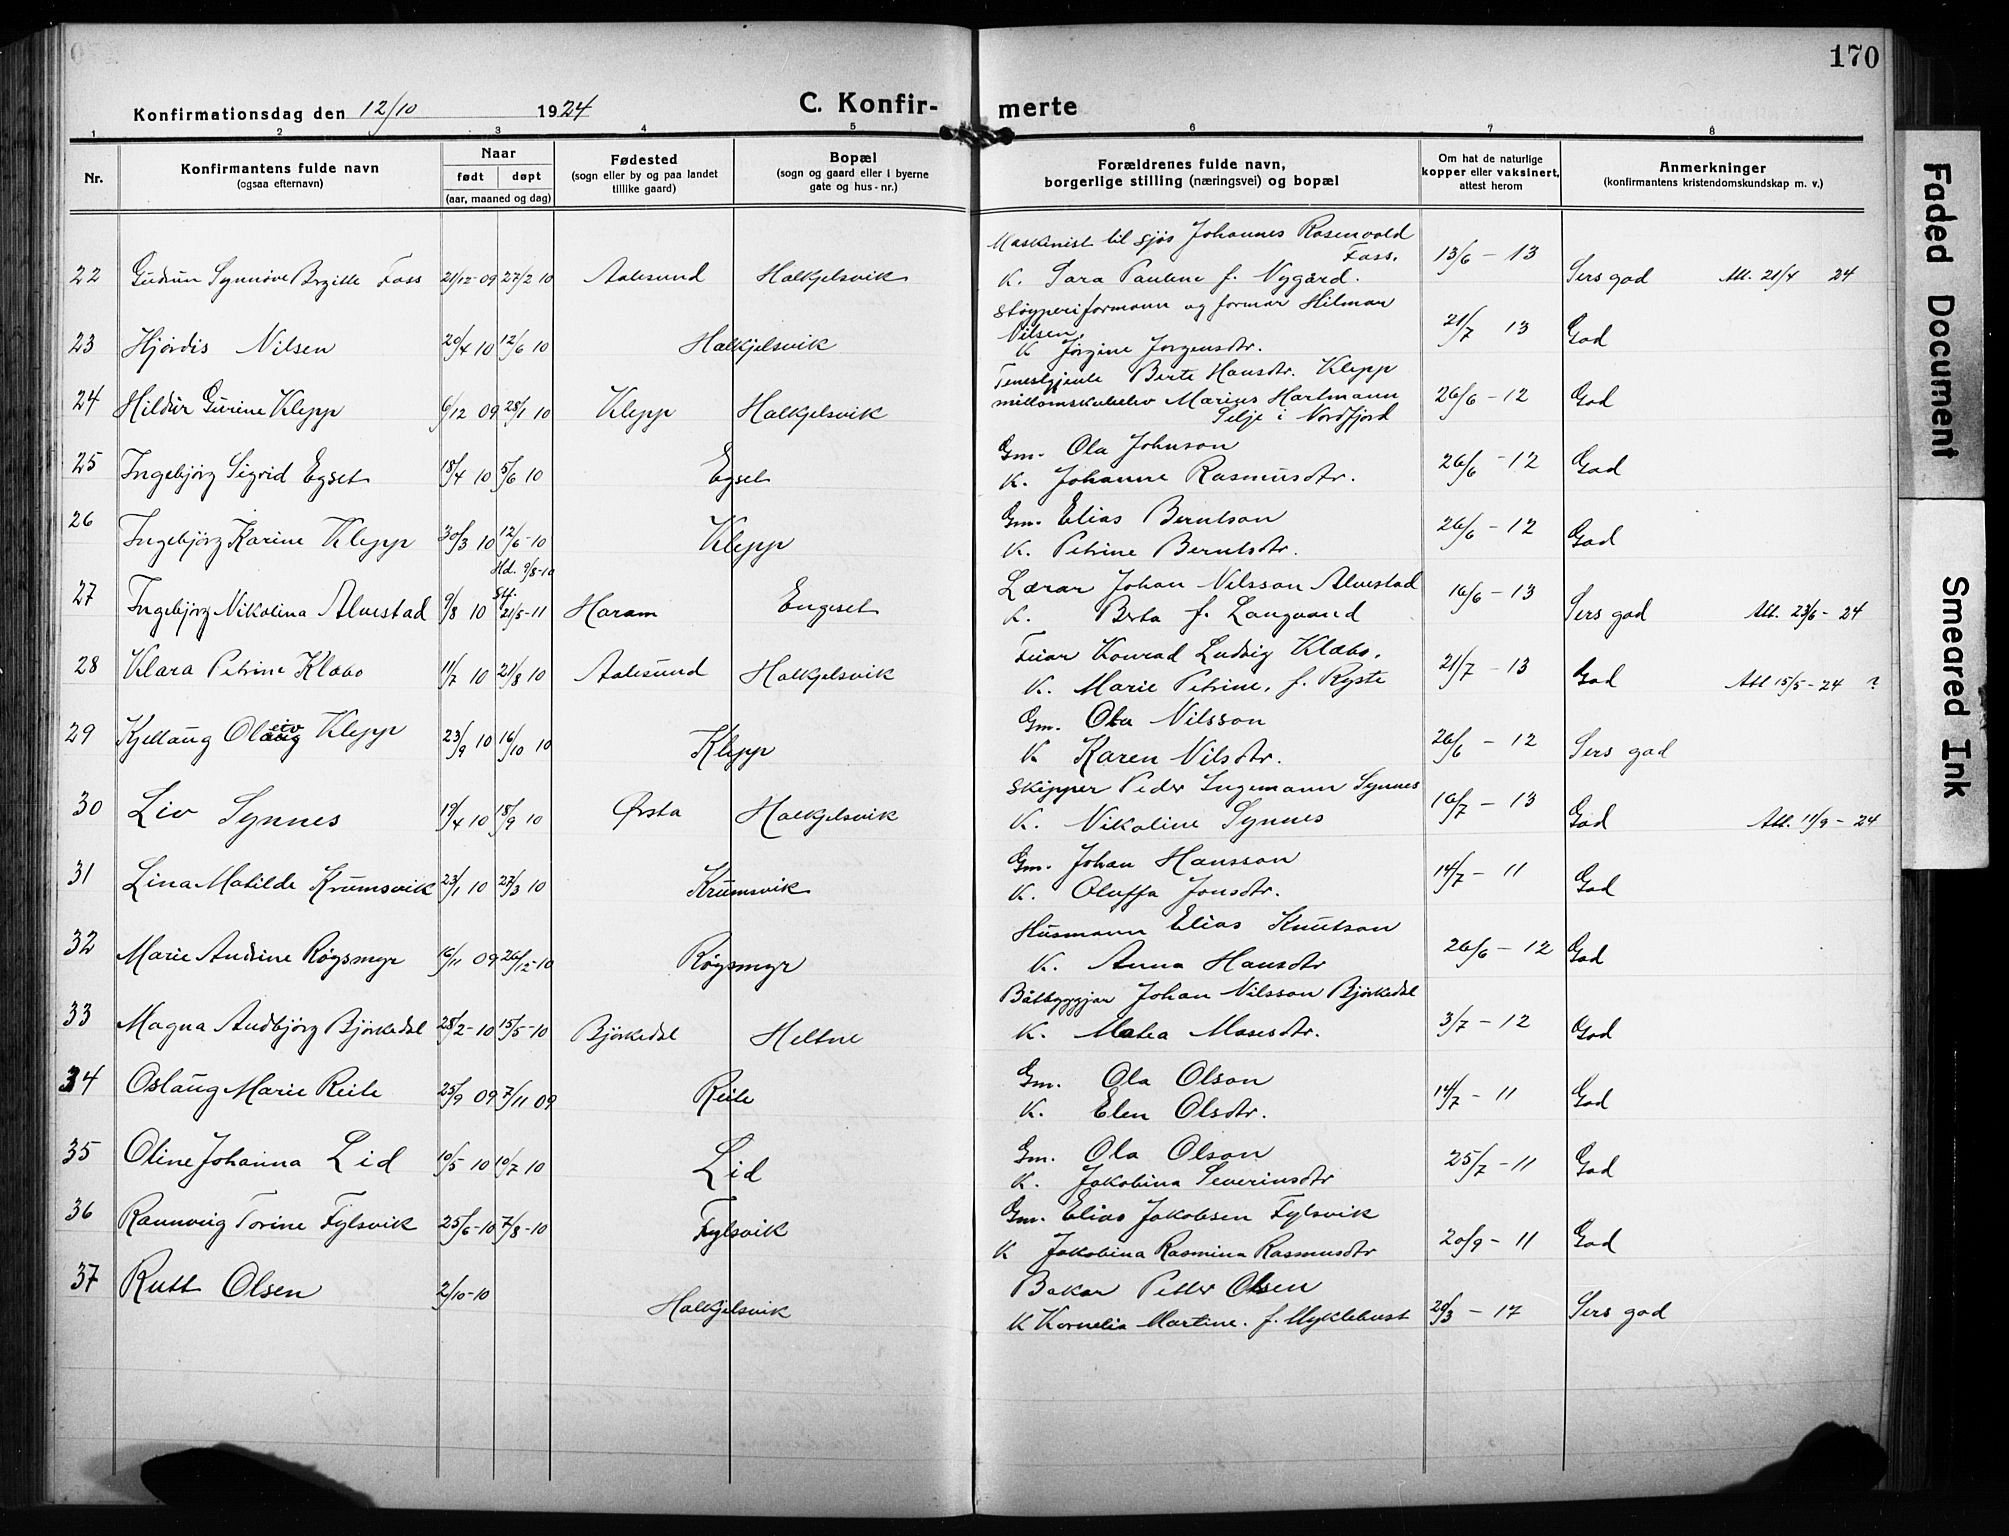 170
Konfirmationsdag den 12/10 1924 C. Konfir- merte
1 2 3 4 5 6 7 8
Nr. Konfirmantens fulde navn (ogsaa efternavn)
Naar født døpt (aar, maaned og dag)
Fødested (sogn eller by og paa landet tillike gaard)
Bopæl (sogn og gaard eller i byerne gate og hus-nr.)
Forældrenes fulde navn, borgerlige stilling (næringsvei) og bopæl
Om hat de naturlige kopper eller vaksinert, attest herom
Anmerkninger (konfirmantens kristendomskundskap m. v.)
Maskinist til sjøs Johannes Rosenvold Foss.
22 Gudrun Synnøve Birgitte Foss 21/12-09 27/2 10 Aalesund Halkjelsvik K. Sara Pauline f. Nygård. 13/6 - 13 Sers god Att. 21/4 24
Støyperiformann og formar Hilmar Nilsen
23 Hjördis Nilsen 20/4 10 12/6 10 Halkjelsvik K Jørgine Jørgensdtr. 21/7 13 God
Tenestgjente Berte Hansdtr. Klepp
24 Hildur Gurine Klepp 6/12 09 28/1 10 Klepp Halkjelsvik millomskuleelev Marius Hartmann Selje i Nordfjord 26/6 - 12 God
Gm. Ola Johnson
25 Ingebjørg Sigrid Egset 18/4 10 5/6 10 Egset K. Johanne Rasmusdtr. 26/6 - 12 God
Gm. Elias Berntson
26 Ingebjørg Karine Klepp 30/3 10 12/6-10 Klepp K. Petrine Berntsdtr. 26/6 - 12 God
Hd. 9/8-10
Lærar Johan Nilsson Alvestad
27 Ingebjørg Nikolina Alvestad 9/8 10 St. 21/5-11 Haram Engeset K. Berta f. Langvand 16/6 - 13 Sers god Att. 23/6 - 24
Fiiar Konrad Ludvig Klæbo.
28 Klara Petrine Klæbo 11/7 10 21/8 10 Aalesund Halkjelsvik K. Marie Petrine, f. Ryste 21/7 - 13 God Att 15/5-24 ?
Gm. Ola Nilsson
29 Kjellaug Oleiv Klepp 23/9 10 16/10 10 Klepp K Karen Nilsdtr. 26/6 - 12 Sers god
Skipper Peder Ingemann Synnes
30 Liv Synnes 19/4 10 18/9 10 Ørsta Halkjelsvik K. Nikoline Synnes 16/7 - 13 God Att. 11/9 - 24
Gm. Johan Hansson
31 Lina Matilde Krumsvik 23/1 10 27/3 10 Krumsvik K. Oluffa Jonsdtr. 14/7 - 11 God
Husmann Elias Knutson
32 Marie Andrine Røysmyr 16/11 09 26/12-10 Røysmyr K. Anna Hansdtr 26/6 - 12 God
Båtbyggjar Johan Nilsson Bjørkedal
33 Magna Audbjörg Björkedal 28/2-10 15/5-10 Björkedal Heltne K. Matea Mosesdtr. 3/7 - 12 God
Gm. Ola Olson
34 Oslaug Marie Reite 25/9 09 7/11 09 Reite K. Elen Olsdtr. 14/7 - 11 God
Gm. Ola Olson
35 Oline Johanna Lid 10/5 10 10/7 10 Lid K. Jakobina Severinsdtr 25/7 - 11 God
Gm. Elias Jakobsen Fylsvik
36 Rannveig Torine Fylsvik 25/6-10 7/8-10 Fylsvik K Jakobina Rasmina Rasmusdtr 20/9 - 11 God
Bakar Petter Olsen
37 Rutt Olsen 2/10-10 Halkjelsvik K Kornelia Martine. f. Myklebust 20/3 - 17 Sers god
Faded Document
Smeared Ink